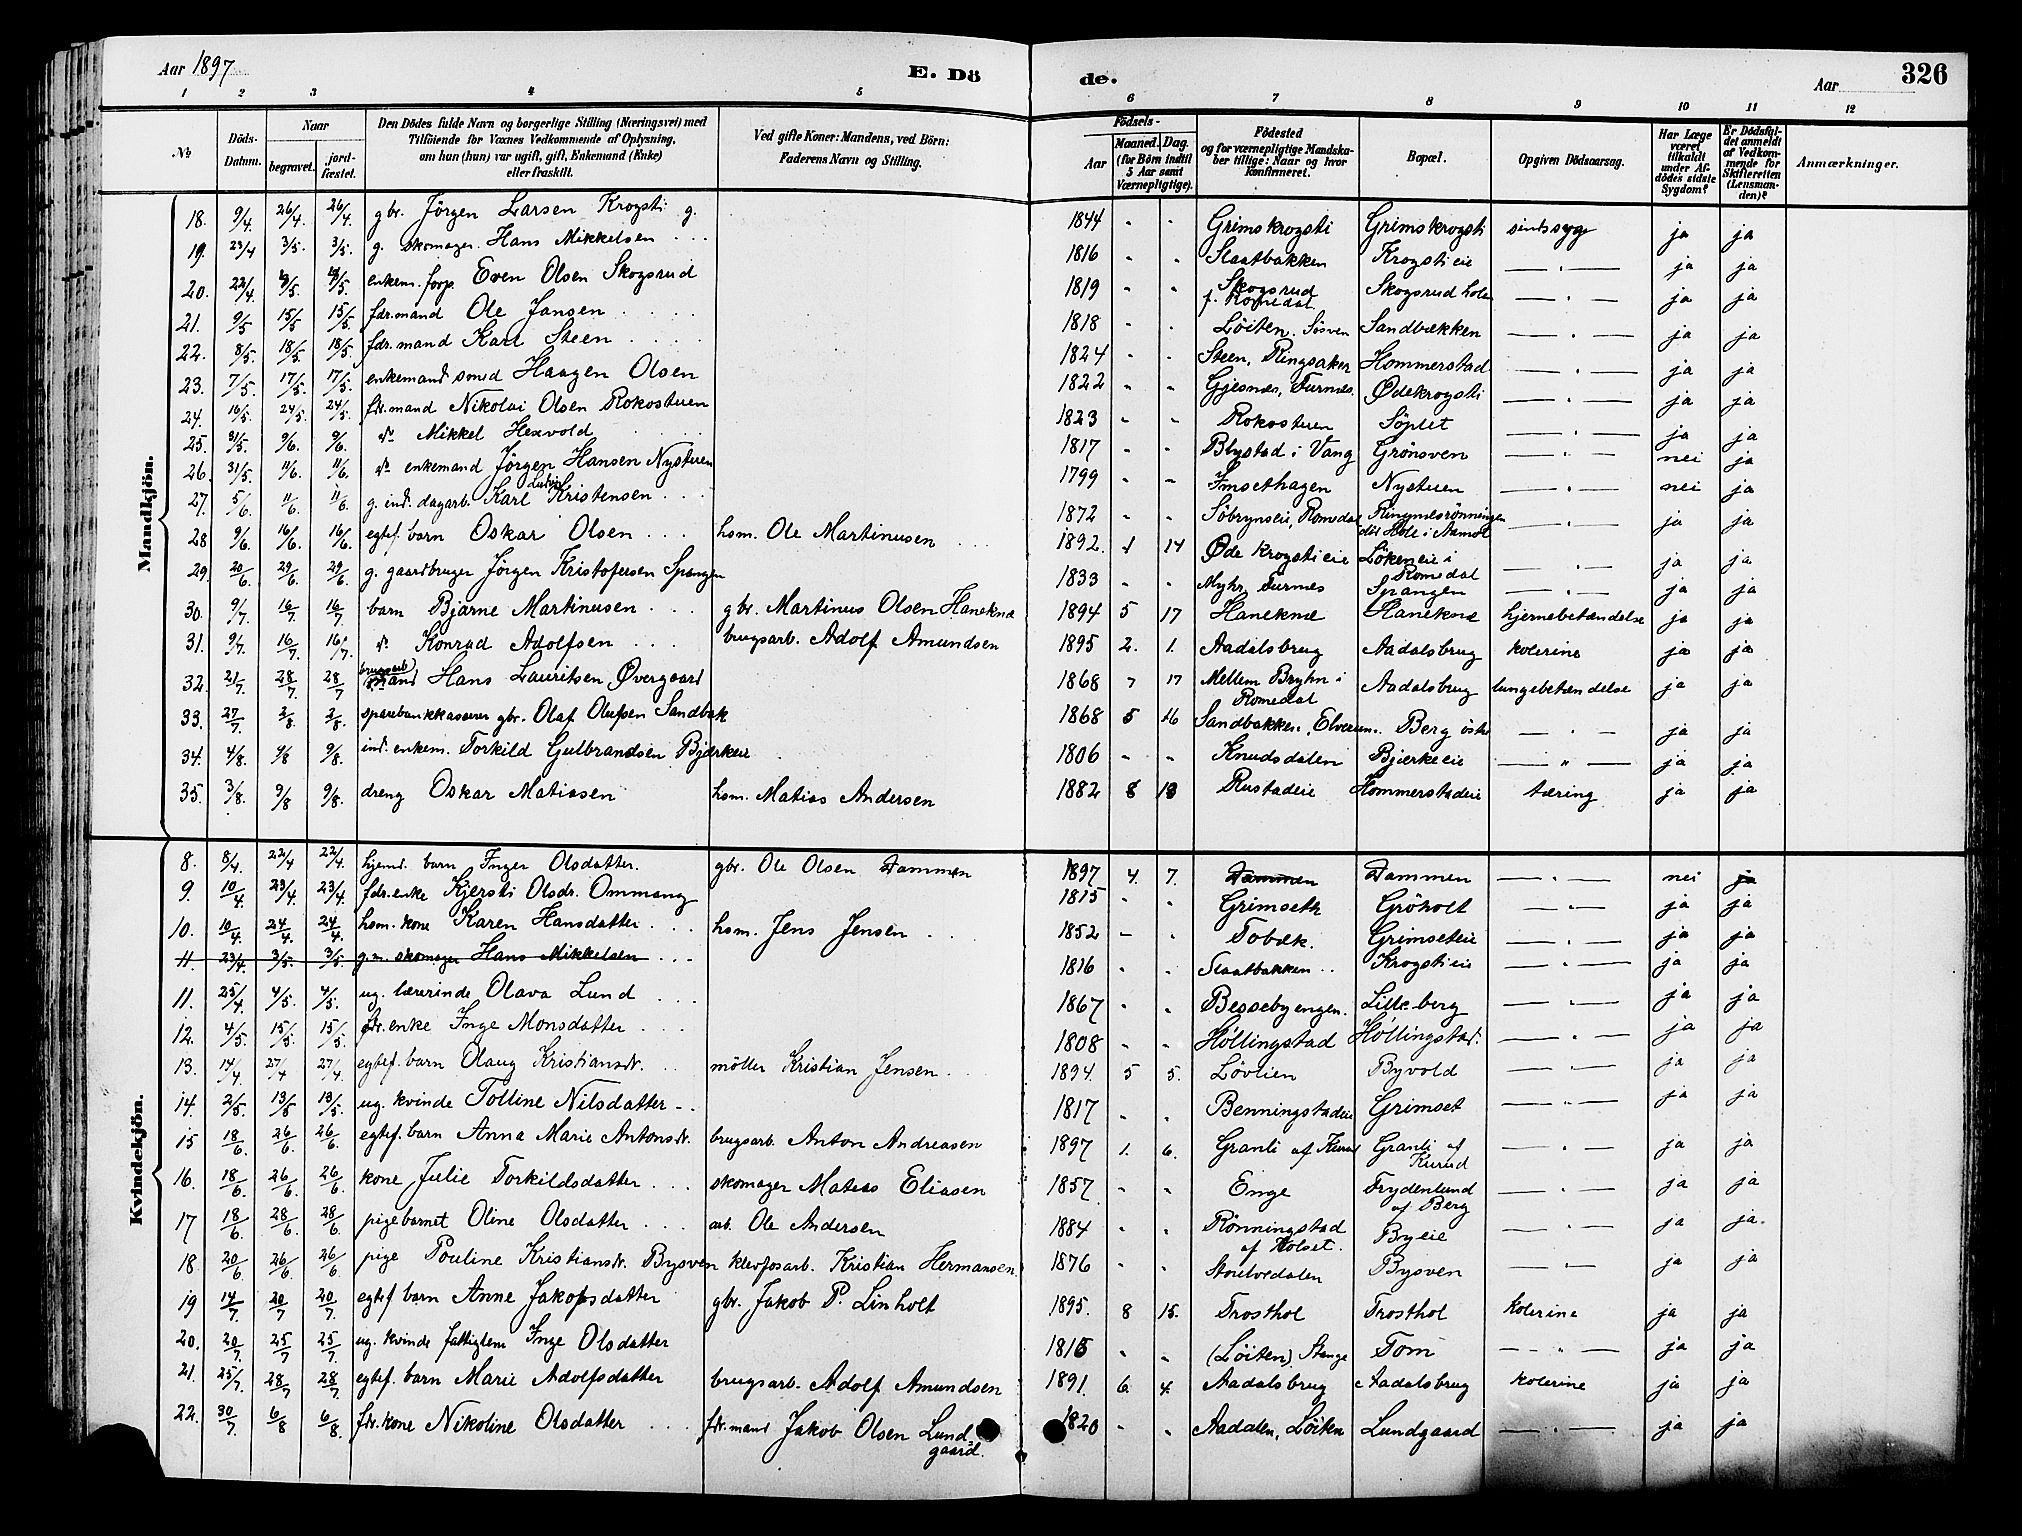 Aar 1897 E. Dö de. Aar 326
1 2 3 4 5 6 7 8 9 10 11 12
№ Döds-Datum. Naar begravet. jord-fæstet. Den Dödes fulde Navn og borgerlige Stilling (Næringsvei) med Tilföiende for Voxnes Vedkommende af Oplysning, om han (hun) var ugift, gift, Enkemand (Enke) eller fraskilt. Ved gifte Koner: Mandens, ved Börn: Faderens Navn og Stilling. Födsels- Aar Maaned. Dag. (for Börn indtil 5 Aar samt Værnepligtige). Födested og for værnepligtige Mandskaber tillige: Naar og hvor konfirmeret. Bopæl. Opgiven Dödsaarsag. Har Læge været tilkaldt under Afdödes sidste Sygdom? Er Dödsfaldet anmeldt af Vedkommende for Skifteretten (Lensmanden)? Anmærkninger.
Mandkjön.
18. 9/4. 26/4. 26/4 gbr. Jörgen Larsen Krogsti g. 1844 - - Grimskrogsti Grimskrogsti sindssyge ja ja
19. 23/4 3/5. 3/5. g. skomager Hans Mikkelsen 1816 - - Slaatbakken Krogstieie — " — ja ja
20. 22/4 /5. /5. enkem. forp. Even Olsen Skogsrud 1819 - - Skogsrud f. Romedal Skogsrud — " — ja ja
21. 9/5 15/5 15/5. fdr. mand Ole Jansen 1818 - - Löiten, Sösven Sandbækken — " — ja ja
22. 8/5. 18/5. 18/5. fdr. mand Karl Steen 1824 - - Steen, Ringsaker Hommerstad — " — ja ja
23. 7/5. 17/5 17/5. enkemand smed Haagen Olsen 1822 - - Gjesnes, Furnes Ødekrogsti — " — ja ja
24. 16/5. 24/5. 24/5. fdr. mand Nikolai Olsen Rokostuen 1823 - - Rokostuen Söplet — " — ja ja
25. 31/5. 9/6. 9/6. do Mikkel Hexvold 1817 - - Blystad i Vang Grönsven — " — nei ja
26. 31/5. 11/6. 11/6. do enkemand Jörgen Hansen Nystuen 1799 - - Imsethagen Nystuen — " — nei ja
27. 5/6. 11/6. 11/6 g. ind. dagarb. Karl Ludvig Kristensen 1872 - - Söbrynseie, Romedal — " — ja ja
28 9/6. 16/6. 16/6. egtef. barn Oskar Olsen hsm. Ole Martinusen 1892. 1 14 Øde Krogstieie Lökeneie i Romedal — " — ja ja
29. 20/6. 29/6. 29/6. g. gaardbruger Jörgen Kristofersen Spangen 1833 - - Myhr, Furnes Spangen ja ja
30. 9/7. 16/7. 16/7. barn Bjarne Martinusen gbr. Martinus Olsen Hanekne 1894 5 17 Hanekne Hanekne hjernebetændelse ja ja
31. 9/7. 16/7. 16/7. do Konrad Adolfsen brugsarb. Adolf Amundsen 1895 2. 1. Aadalsbrug Aadalsbrug kolerine ja ja
32. 21/7. 28/7 28/7 brugsarb Hans Lauritsen Övergaard 1868 7 17 Mellem Bryhn i Romedal Aadalsbrug lungebetændelse ja ja
33. 27/7. 2/8. 2/8. sparebankkasserer gbr. Olaf Olufsen Sandbak 1868 5 16 Sandbakken, Elverum. Berg östre — " — ja ja
34. 4/8. 9/8 9/8. ind. enkem. Torkild Gulbrandsen Bjerkeie 1806 - - Knudsdalen Bjerkeeie — " — ja ja
35. 3/8. 9/8 9/8. dreng Oskar Matiasen hsm. Matias Andersen 1882 8 13 Rustadeie Hommerstadeie tæring ja ja
Kvindekjön.
8. 8/4. 22/4 22/4. hjemd. barn Inger Olsdatter. gbr. Ole Olsen Dammen 1897 4. 7. Dammen Dammen — " — nei ja
9. 10/4 23/4. 23/4. fdr. enke Kjersti Olsdr. Ommang 1815 - - Grimseth Gröholt — " — ja ja
10. 10/4. 24/4. 24/4. hsm. kone Karen Hansdatter hsm. Jens Jensen 1852 - - Tobæk. Grimseteie — " — ja ja
11. 23/4. 3/5. 3/5. g. m. skomager Hans Mikkelsen 1816 - - Slaatbakken Krogstieie — " — ja ja
11. 25/4 4/5. 4/5. ug. lærerinde Olava Lund 1867 - - Bessebyengen. Lilleberg — " — ja ja
12. 4/5 15/5. 15/5. fdr. enke Inge Monsdatter 1808 - - Höllingstad Höllingstad. — " — ja ja
13. 14/4. 27/4 27/4. egtef. barn Olaug Kristiansdr. möller Kristian Jensen 1894. 5 5. Lövlien Byvold — " — ja ja
14. 2/5. 13/5 13/5. ug. kvinde Tolline Nilsdatter 1817 - - Benningstadeie Grimset — " — ja ja
15 18/6. 26/6. 26/6. egtef. barn Anna Marie Antonsdr. brugsarb. Anton Andreasen 1897 1. 6. Granli af Kurud Granli af Kurud — " — ja ja
16. 18/6. 26/6. 26/6. kone Julie Torkildsdatter skomager Matias Eliasen 1857 - - Enge Frydenlund af Berg — " — ja ja
17 18/6. 28/6. 28/6. pigebarnet Oline Olsdatter arb. Ole Andersen 1884 - - Rönningstad af Holset. Byeie — " — ja ja.
18 20/6. 26/6. 26/6. pige Pouline Kristiansdr. Bysven klevfosarb. Kristian Hermansen. 1876 - - Bysven — " — ja ja
19 14/7. 20/7 20/7 egtef barn Anne Jakopsdatter gbr. Jakob P. Linholt 1895. 8 15. Trosthol Trosthol kolerine ja ja
20. 20/7. 25/7 25/7. ug. kvinde fattiglem Inge Olsdatter 1815 - - (Löiten) Stange Tom — " — ja ja
21. 25/7. 28/7 28/7. egtef. barn Marie Adolfsdatter brugsarb. Adolf Amundsen 1891. 6. 4. Aadalsbrug Aadalsbrug kolerine ja ja
22. 30/7 6/8 6/8. fdr. kone Nikoline Olsdatter fdr. mand Jakob Olsen Lundgaard. 1820 - - Aadalen, Löiten Lundgaard — " — ja ja